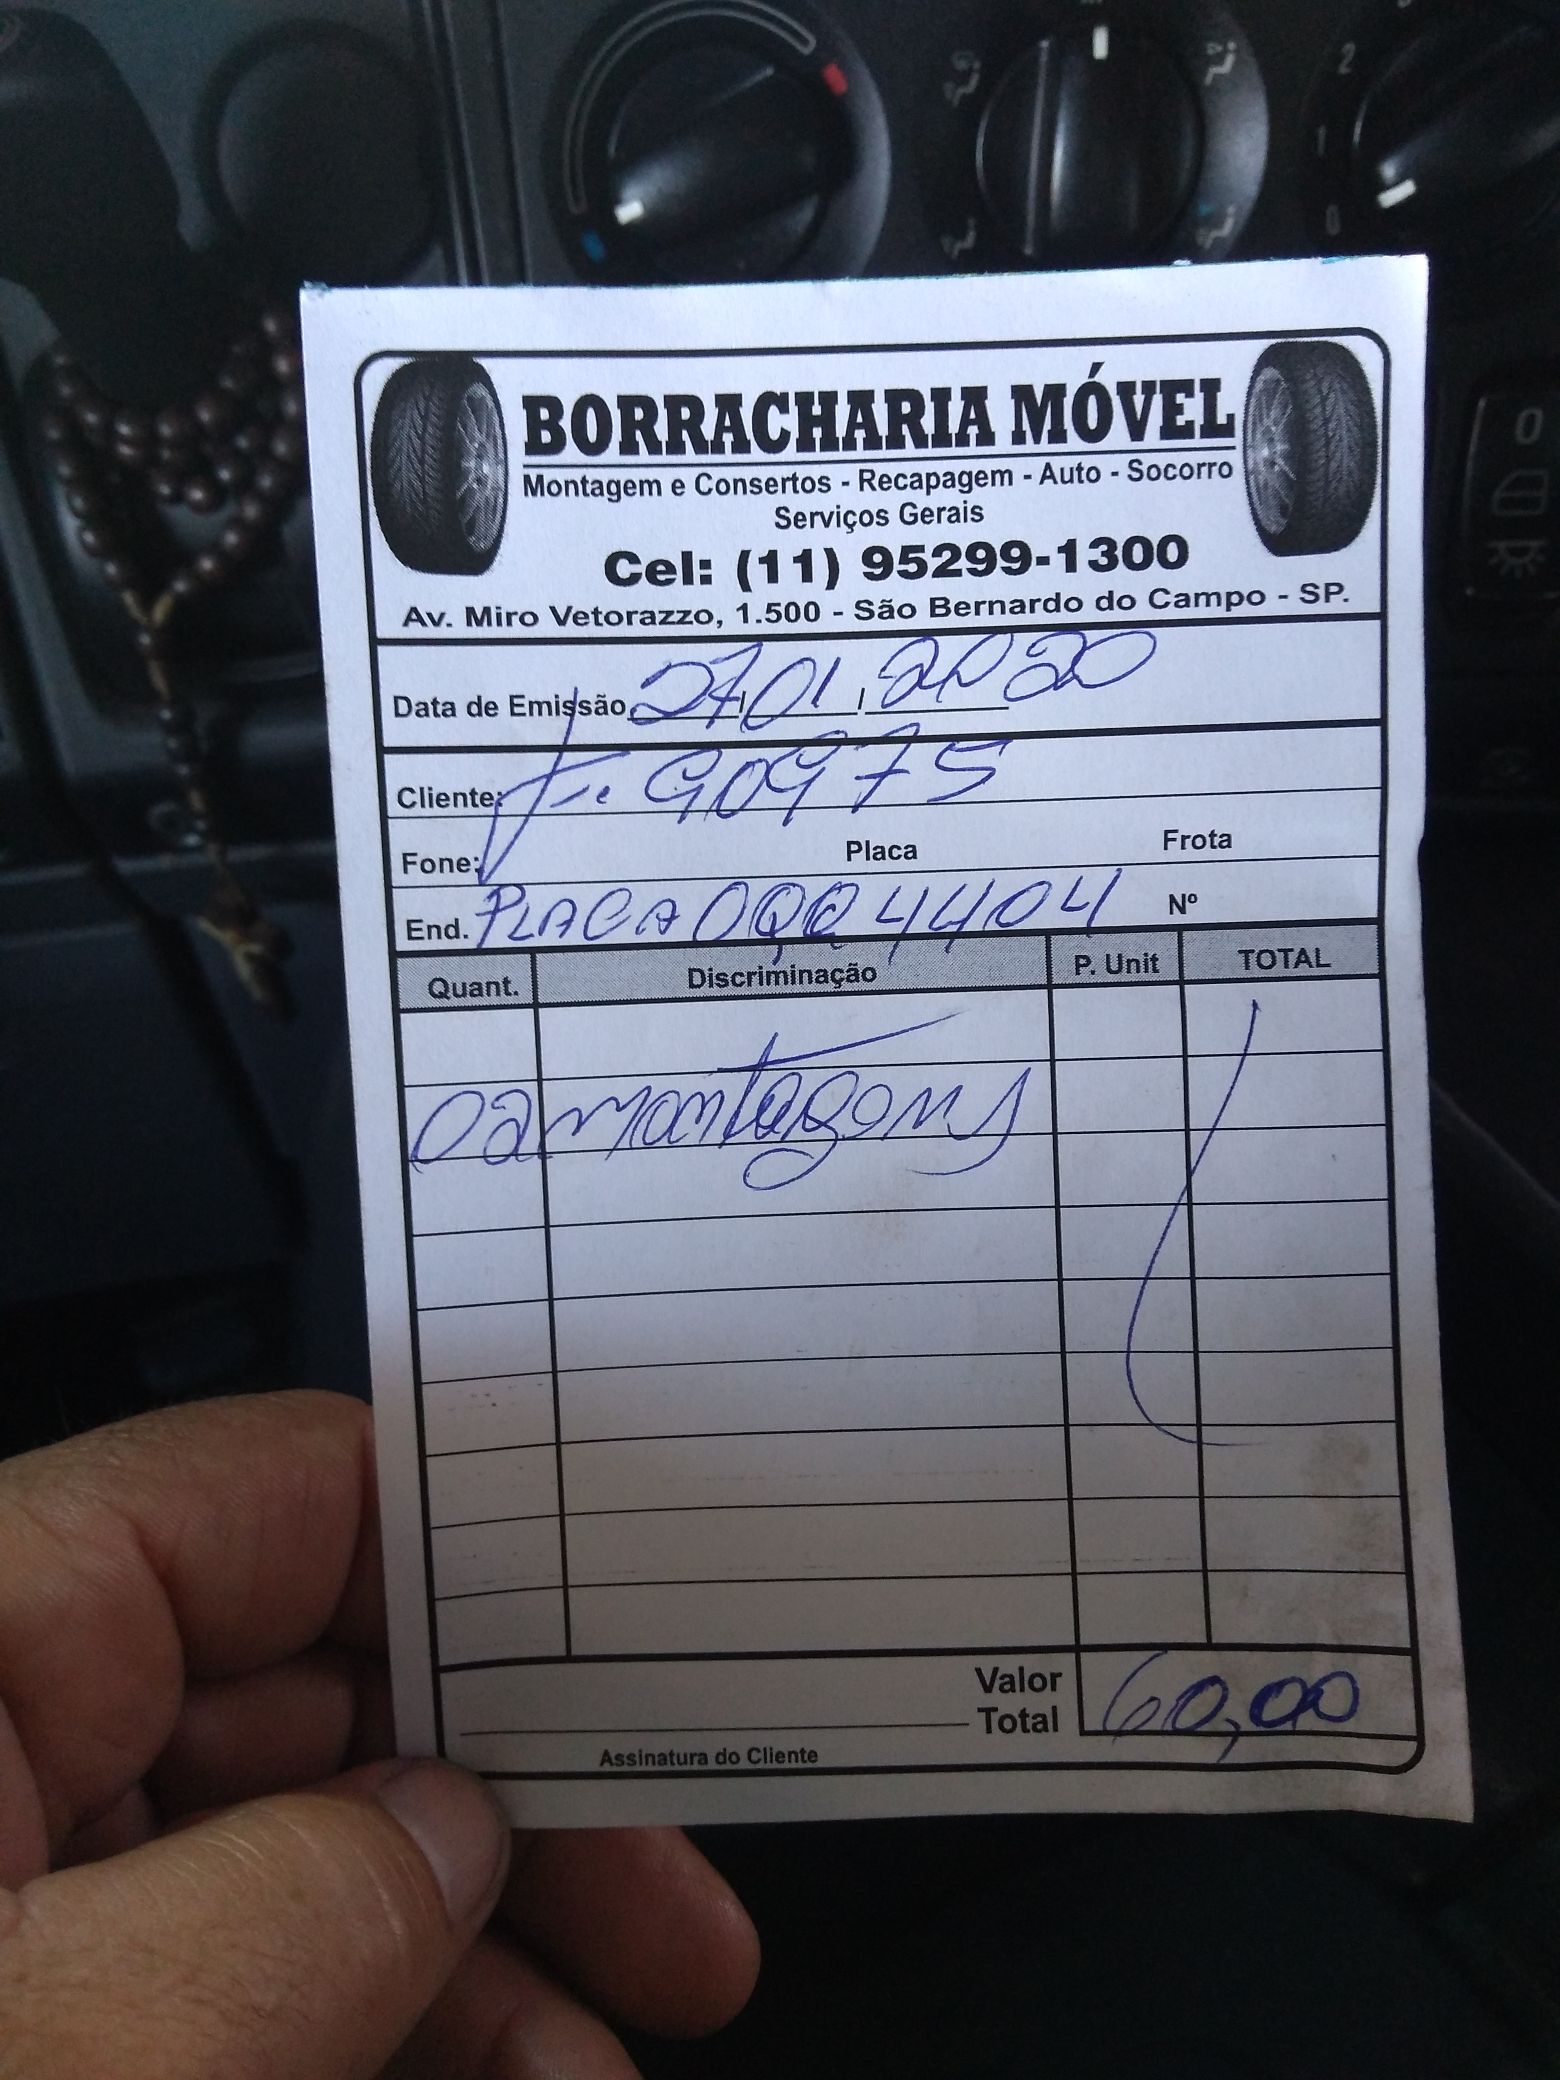 BORRACHARIA MÓVEL
Montagem e Consertos - Recapagem - Auto - Socorro
Serviços Gerais
Cel: (11) 95299-1300
Av. Miro Vetorazzo, 1.500 - São Bernardo do Campo - SP.
Data de Emissão 27/01/2020
Cliente: 90975
Fone: Placa Frota
End. PLACA OQQ 4404 Nº
Quant. Discriminação P. Unit TOTAL
02 montagens
Valor
Total 60,00
Assinatura do Cliente
2
1
0
0